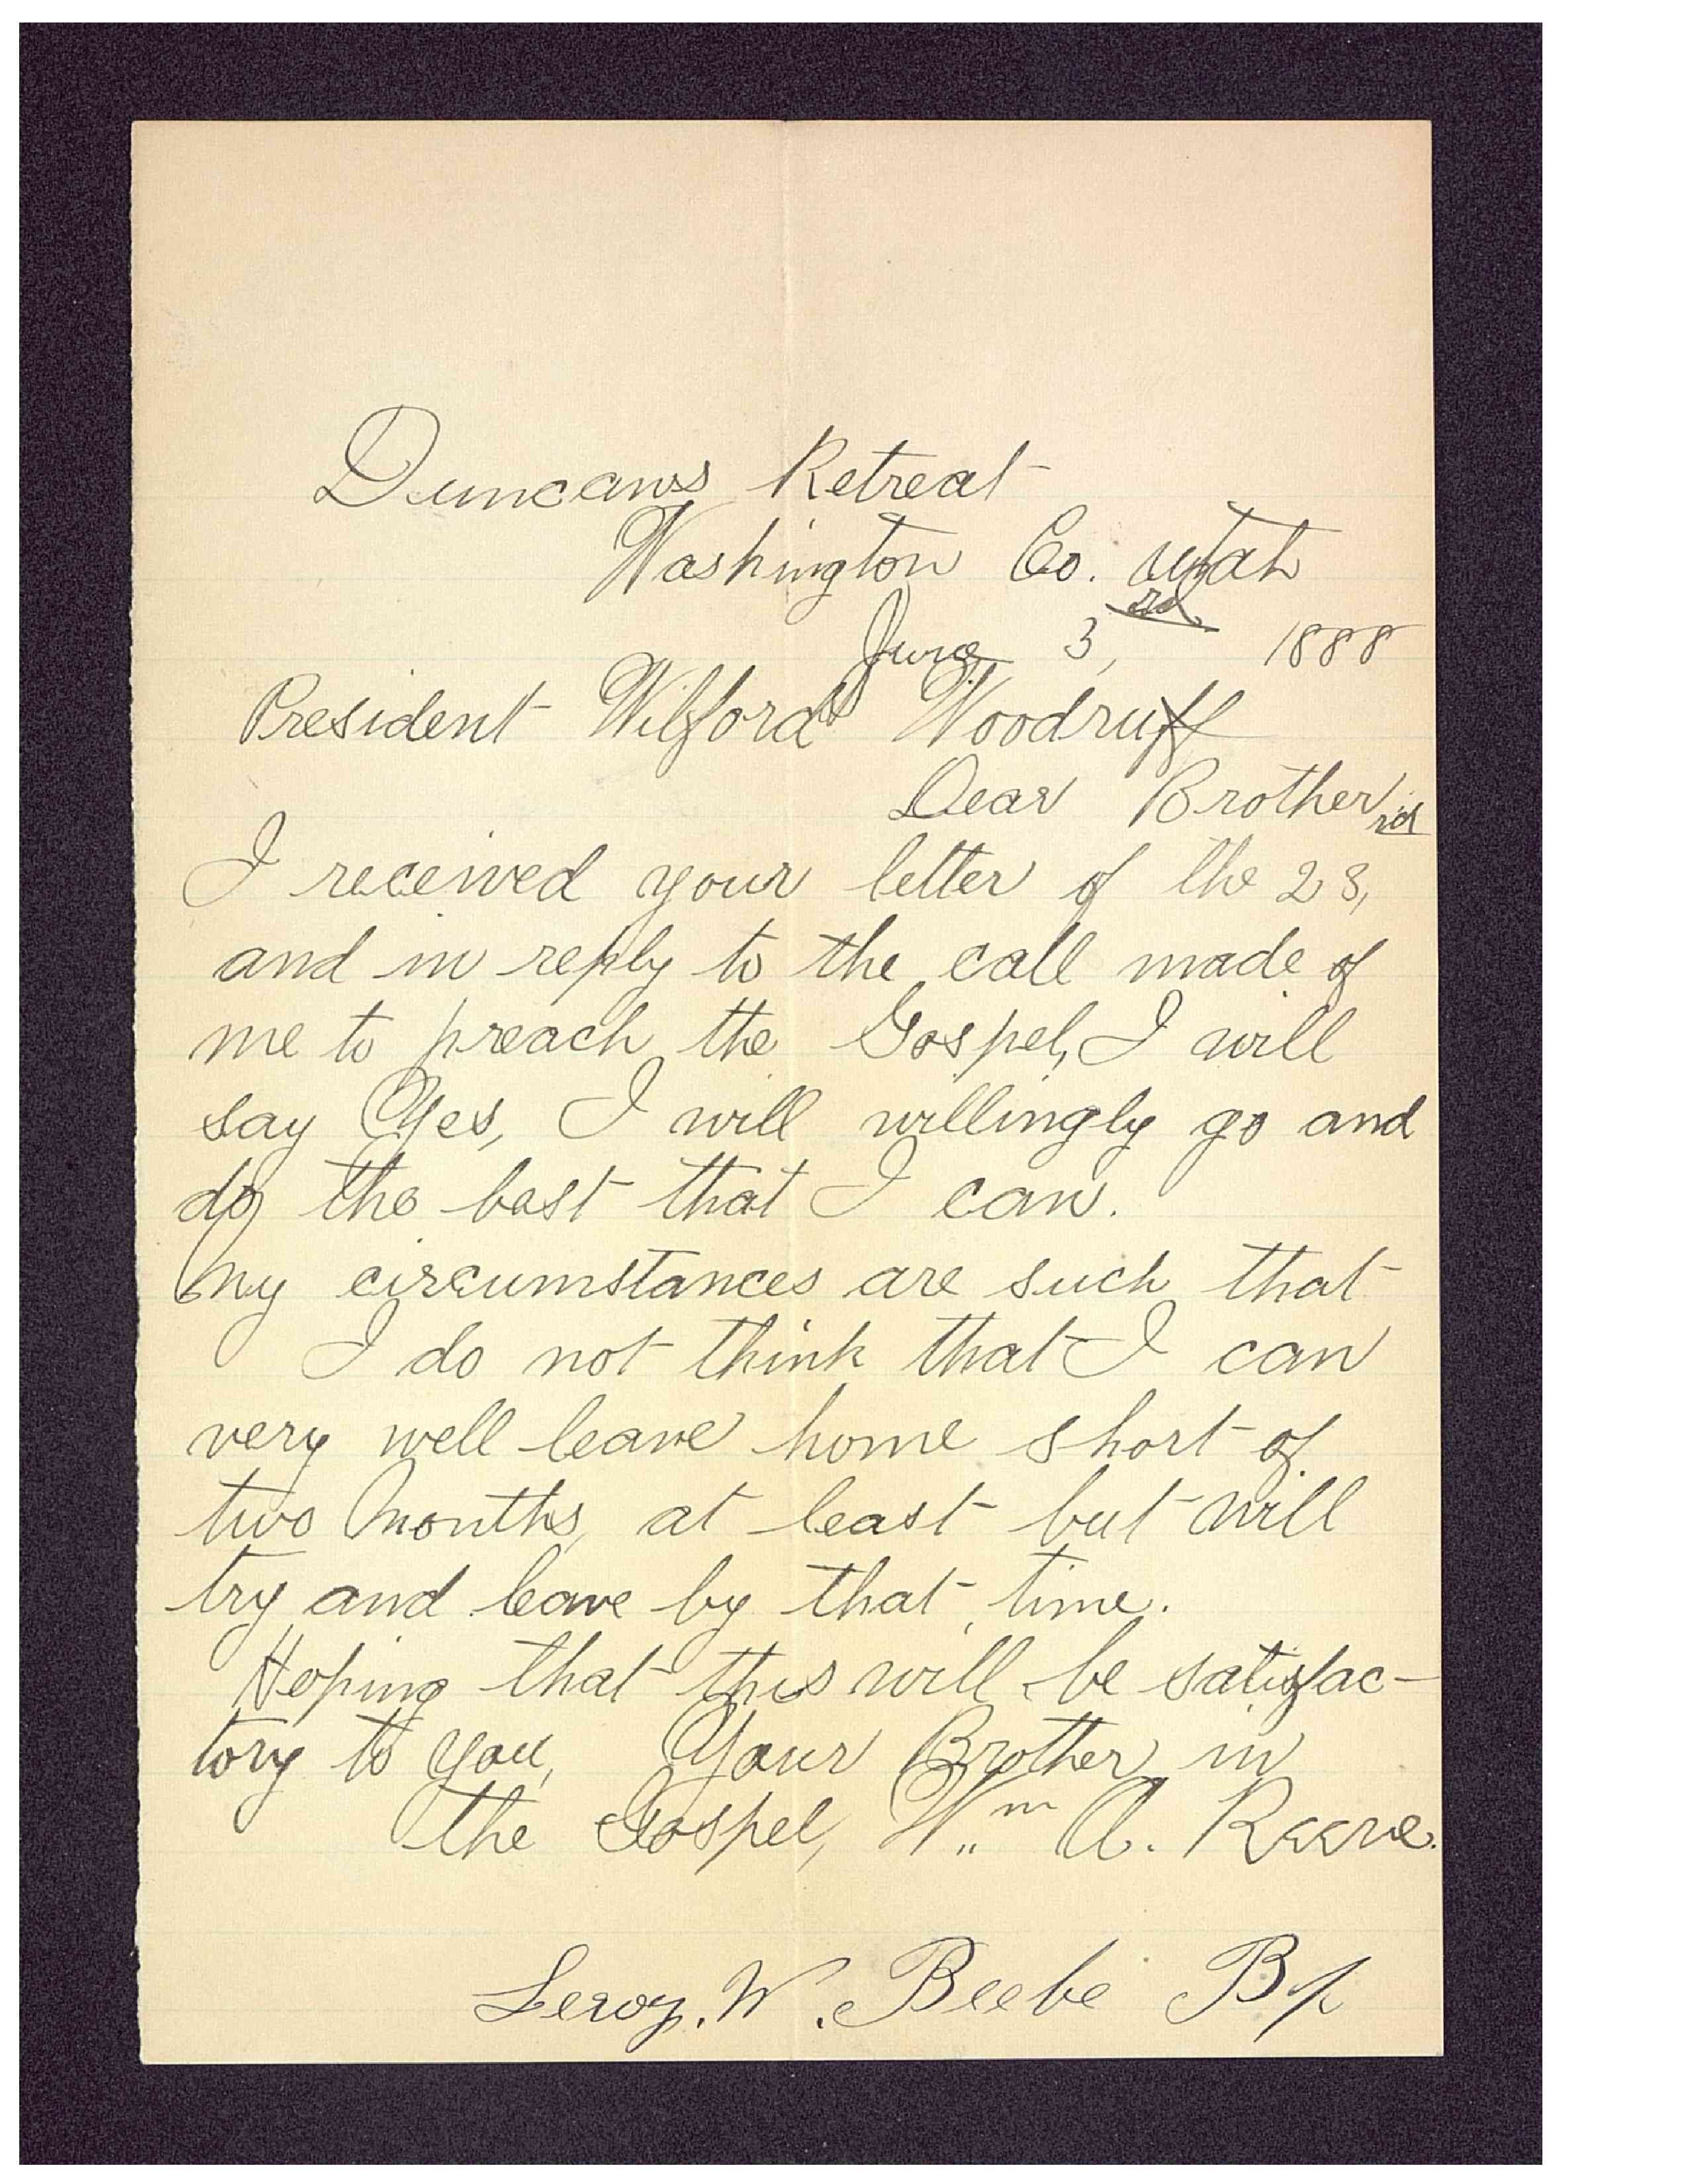 Duncans Retreat
Washington Co. Utah
June 3,rd 1888
President Wilford Woodruff
Dear Brother
I received your letter of the 23,rd
and in reply to the call made of
me to preach the Gospel, I will
say Yes, I will willingly go and
do the best that I can.
My circumstances are such that
I do not think that I can
very well leave home short of
two Months, at least but will
try and leave by that time.
Hoping that this will be satisfac-
tory to you, Your Brother in
the Gospel, Wm A. Reeve.
Leroy. W. Beebe Bp